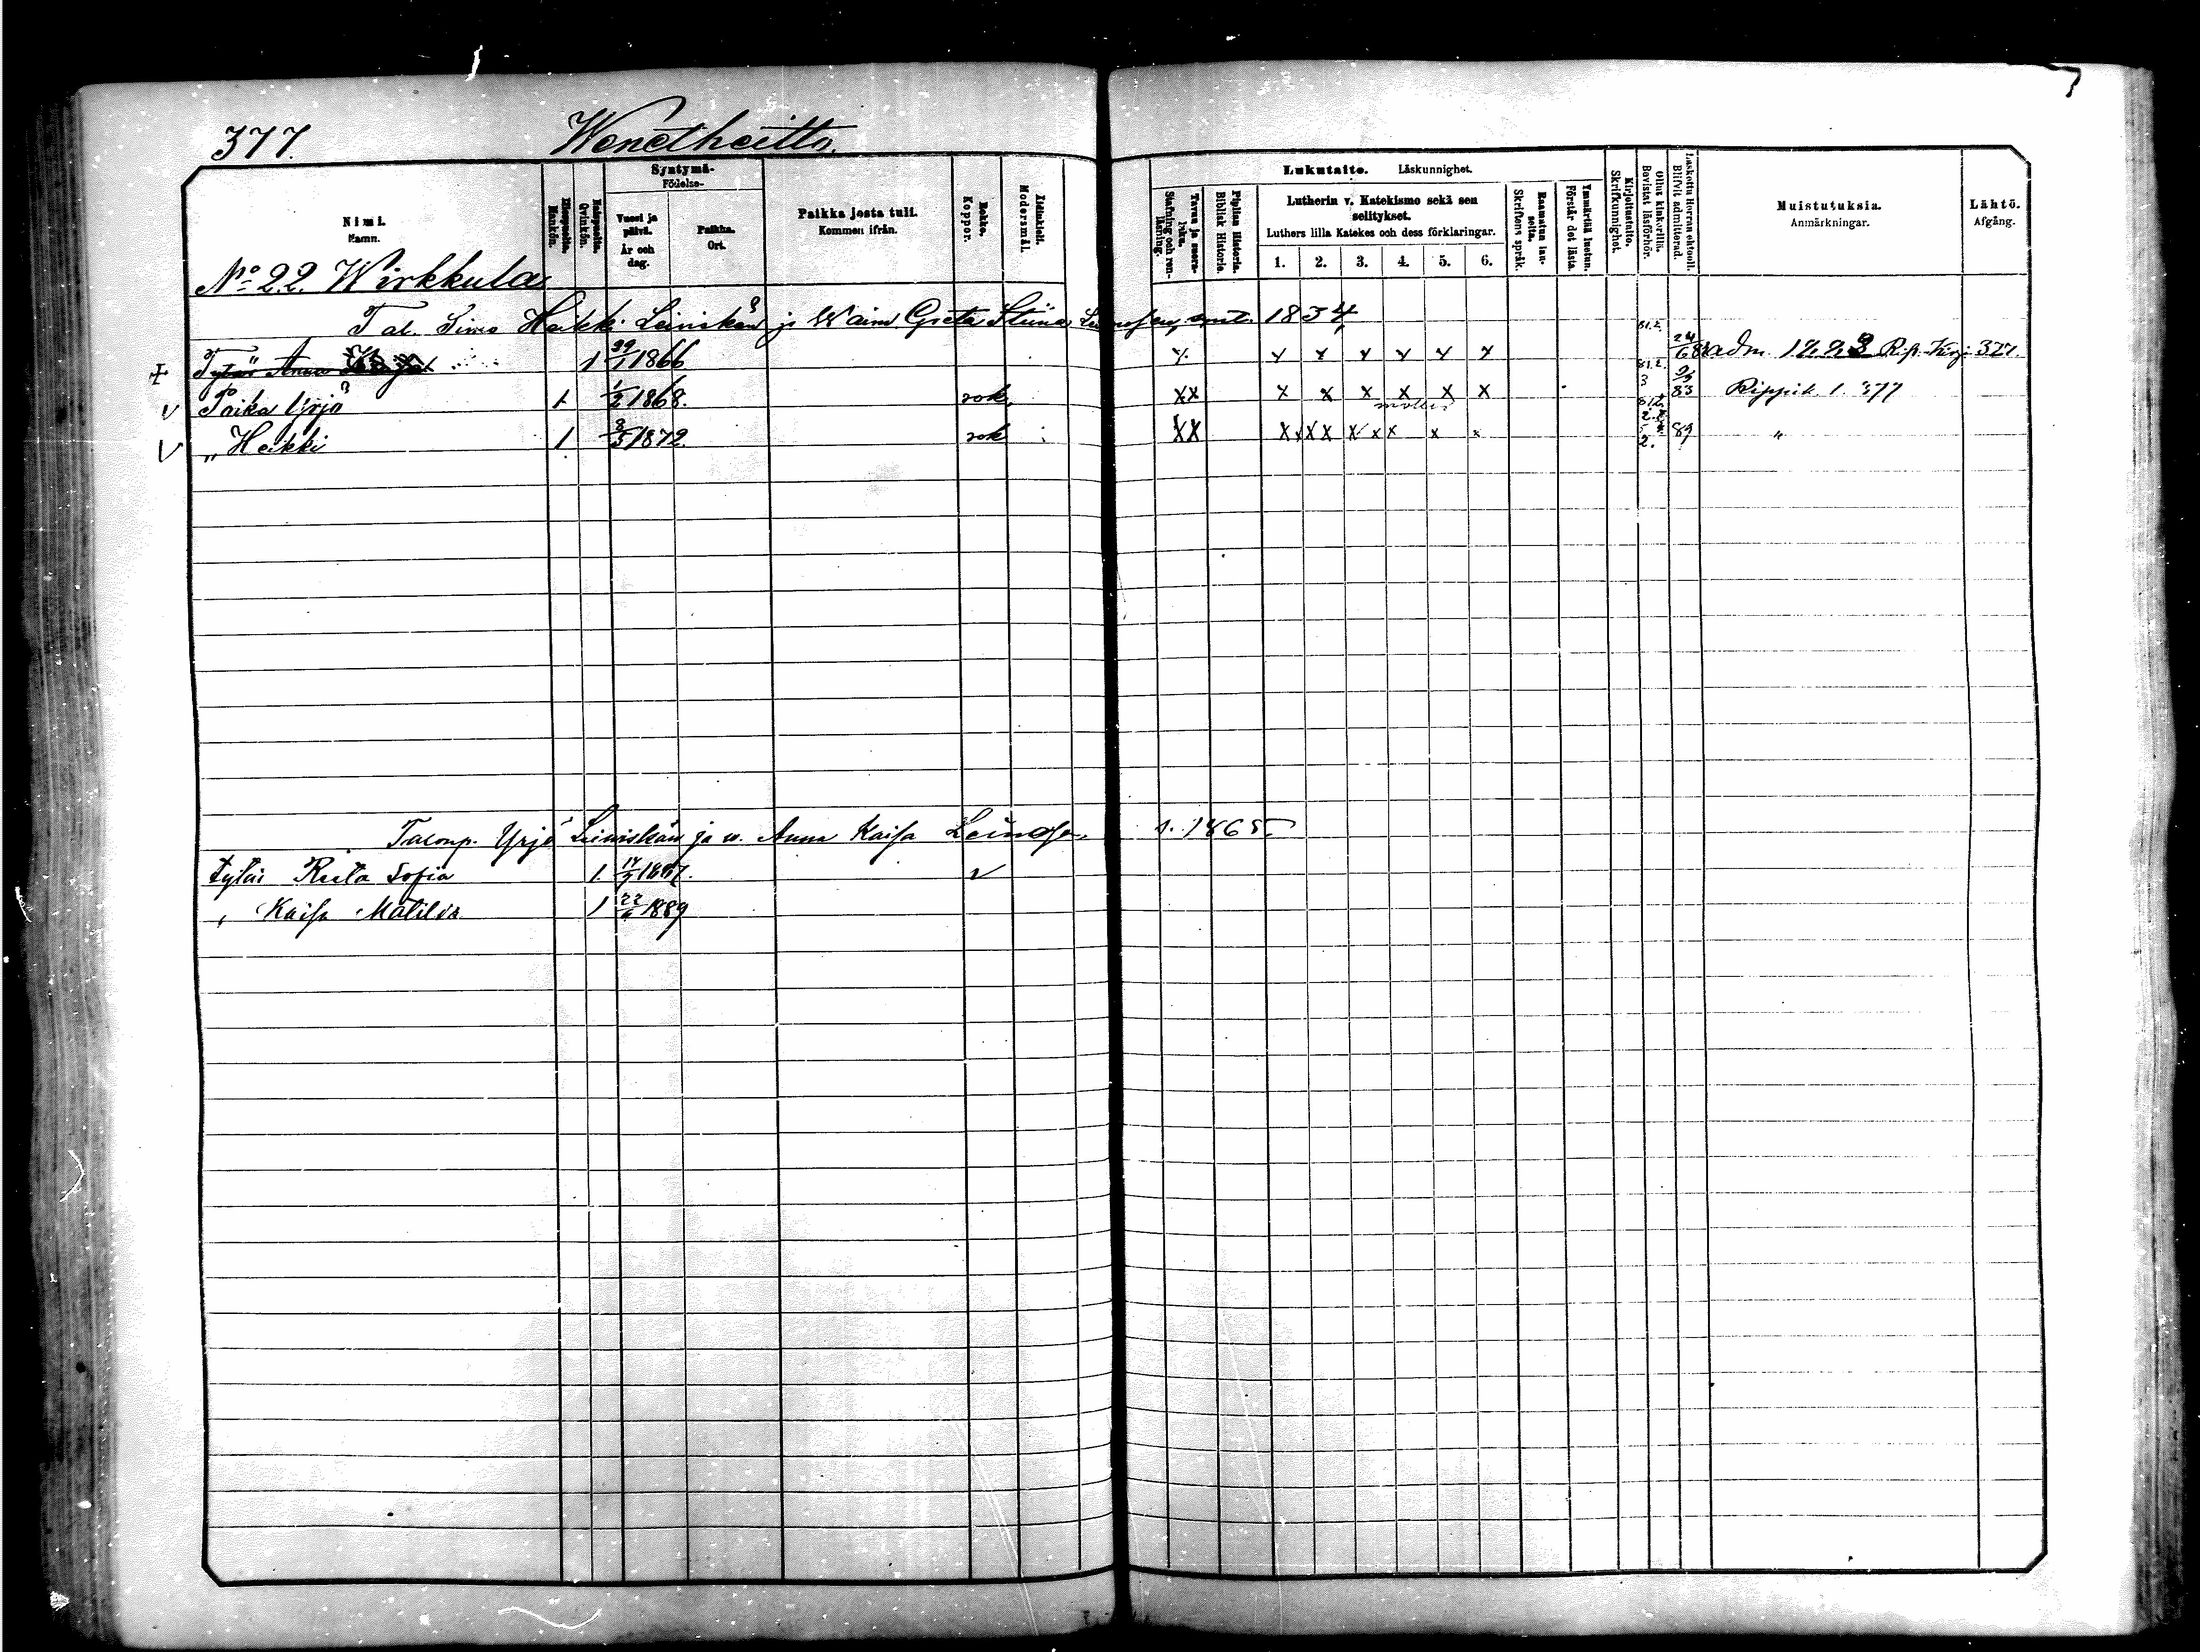 377. Wenetheitto.
Nimi.
Namn.
Miespuolta.
Mankön.
Naispuolta.
Qvinkön.
Syntymä-
Födelse-
Vuosi ja päivä.
År och dag.
Paikka.
Ort.
Paikka josta tuli.
Kommen ifrån.
Rokko.
Koppor.
Äidinkieli.
Modersmål.
Lukutaito. Läskunnighet.
Tavuu ja suora-luku.
Stafning och ren-läsning.
Piplian Historia.
Biblisk Historia.
Lutherin v. Katekismo sekä sen selitykset.
Luthers lilla Katekes och dess förklaringar.
1. 2. 3. 4. 5. 6.
Raamatun lau-seita.
Skriftens språk.
Ymmärtää luetun.
Förstår det lästa.
Kirjoitustaito.
Skrifkunnighet.
Ollut kinkerillä.
Bevistat läsförhör.
Laskettu Herran ehtool.
Blifvit admitterad.
Muistutuksia.
Anmärkningar.
Lähtö.
Afgång.
No 22 Wirkkula
Tal. Simo Heikki Leiniskän ja Waim Greta Stiina synt. 1834
Tytär Anna 1 1866 x x x x x x x adm. Rip. Kirj. 377.
v Poika Yrjö 1 1/2 1868. rok. xx x x x x x x 83 Rippik. 1. 377
v „ Heikki 1 3/5 1872. rok xx x x xx x x x x x x 89 "
Talonp. Yrjö Leiniskän ja w. Anna Kaisa s. 1865
tytär Reeta Sofia 1 1887. v
„ Kaisa Matilda 1 1889